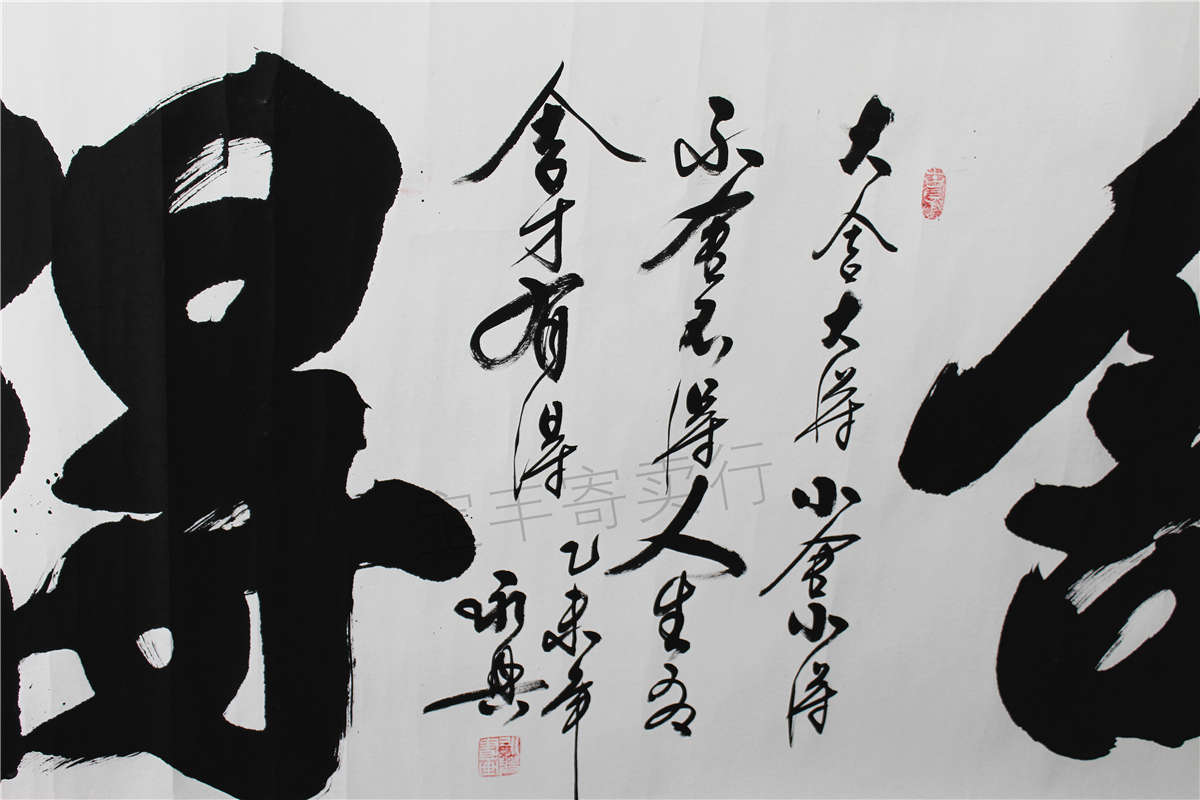 舍
大舍大得小舍小得
不舍不得人生有
舍才有得
乙未年
得
宝丰寄卖行